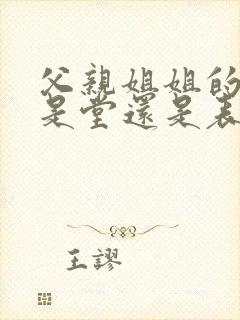 父親姐姐的
是堂還是表
王謬